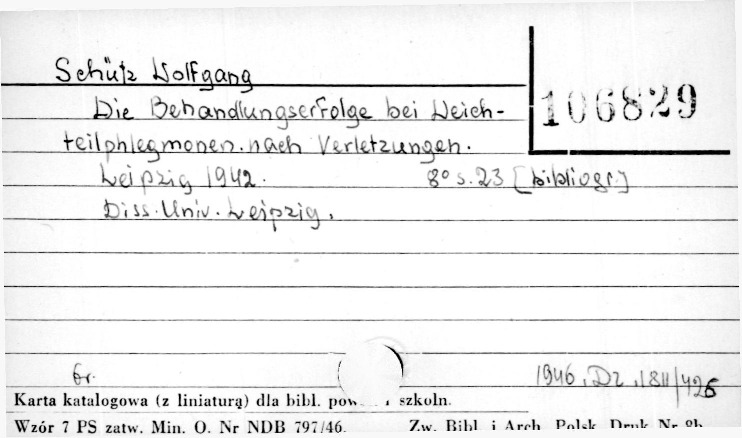 Schütz Wolfgang
106829
Die Behandlungserfolge bei Weich-
teilphlegmonen nach Verletzungen.
Leipzig 1942. 8° s. 23 [bibliogr.]
Diss. Univ. Leipzig.
Gr. 1946. Dz. 1811/426
Karta katalogowa (z liniaturą) dla bibl. pow szkoln.
Wzór 7 PS zatw. Min. O. Nr NDB 797/46. Zw. Bibl. i Arch. Polsk. Druk Nr 8b